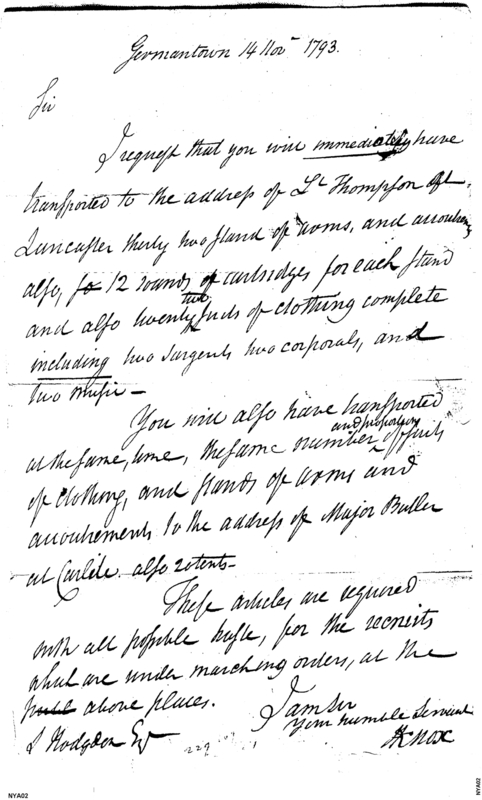 Germantown 14 Nov 1793.
Sir
I request that you will immediately have
transported to the address of Lt Thompson at
Lancaster thirty two stand of arms, and accoutremts
also, fo 12 rounds of cartridges for each stand
and also twenty two suits of clothing complete
including two sargents two corporals, and
two music –
You will also have transported
at the same, time, the same number and proportion of suits
of clothing, and stands of arms and
accoutrements to the address of Major Butler
at Carlile. also 20 tents –
These articles are required
with all possible haste, for the recruits
what are under marching orders, at the
above places.
I am Sir
Your humble Servant
HKnox
S Hodgdon Esqr
NYA02
NYA02